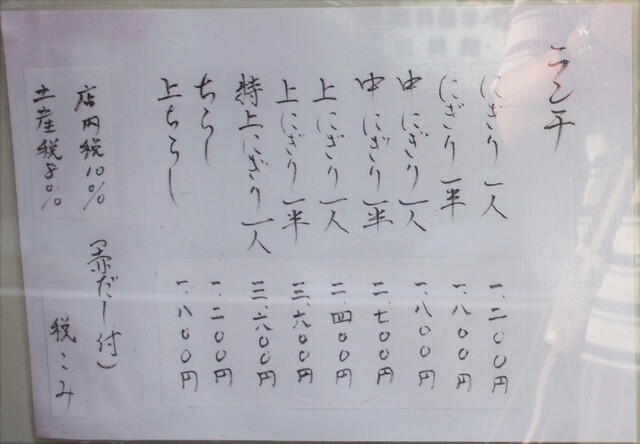 ランチ
にぎり 一人 一、二〇〇円
にぎり 一半 一、八〇〇円
中にぎり 一人 一、八〇〇円
中にぎり 一半 二、七〇〇円
上にぎり 一人 二、四〇〇円
上にぎり 一半 三、六〇〇円
特上にぎり 一人 三、六〇〇円
ちらし 一、二〇〇円
上ちらし 一、八〇〇円
(赤だし付)
店内税10%
土産税8%
税こみ